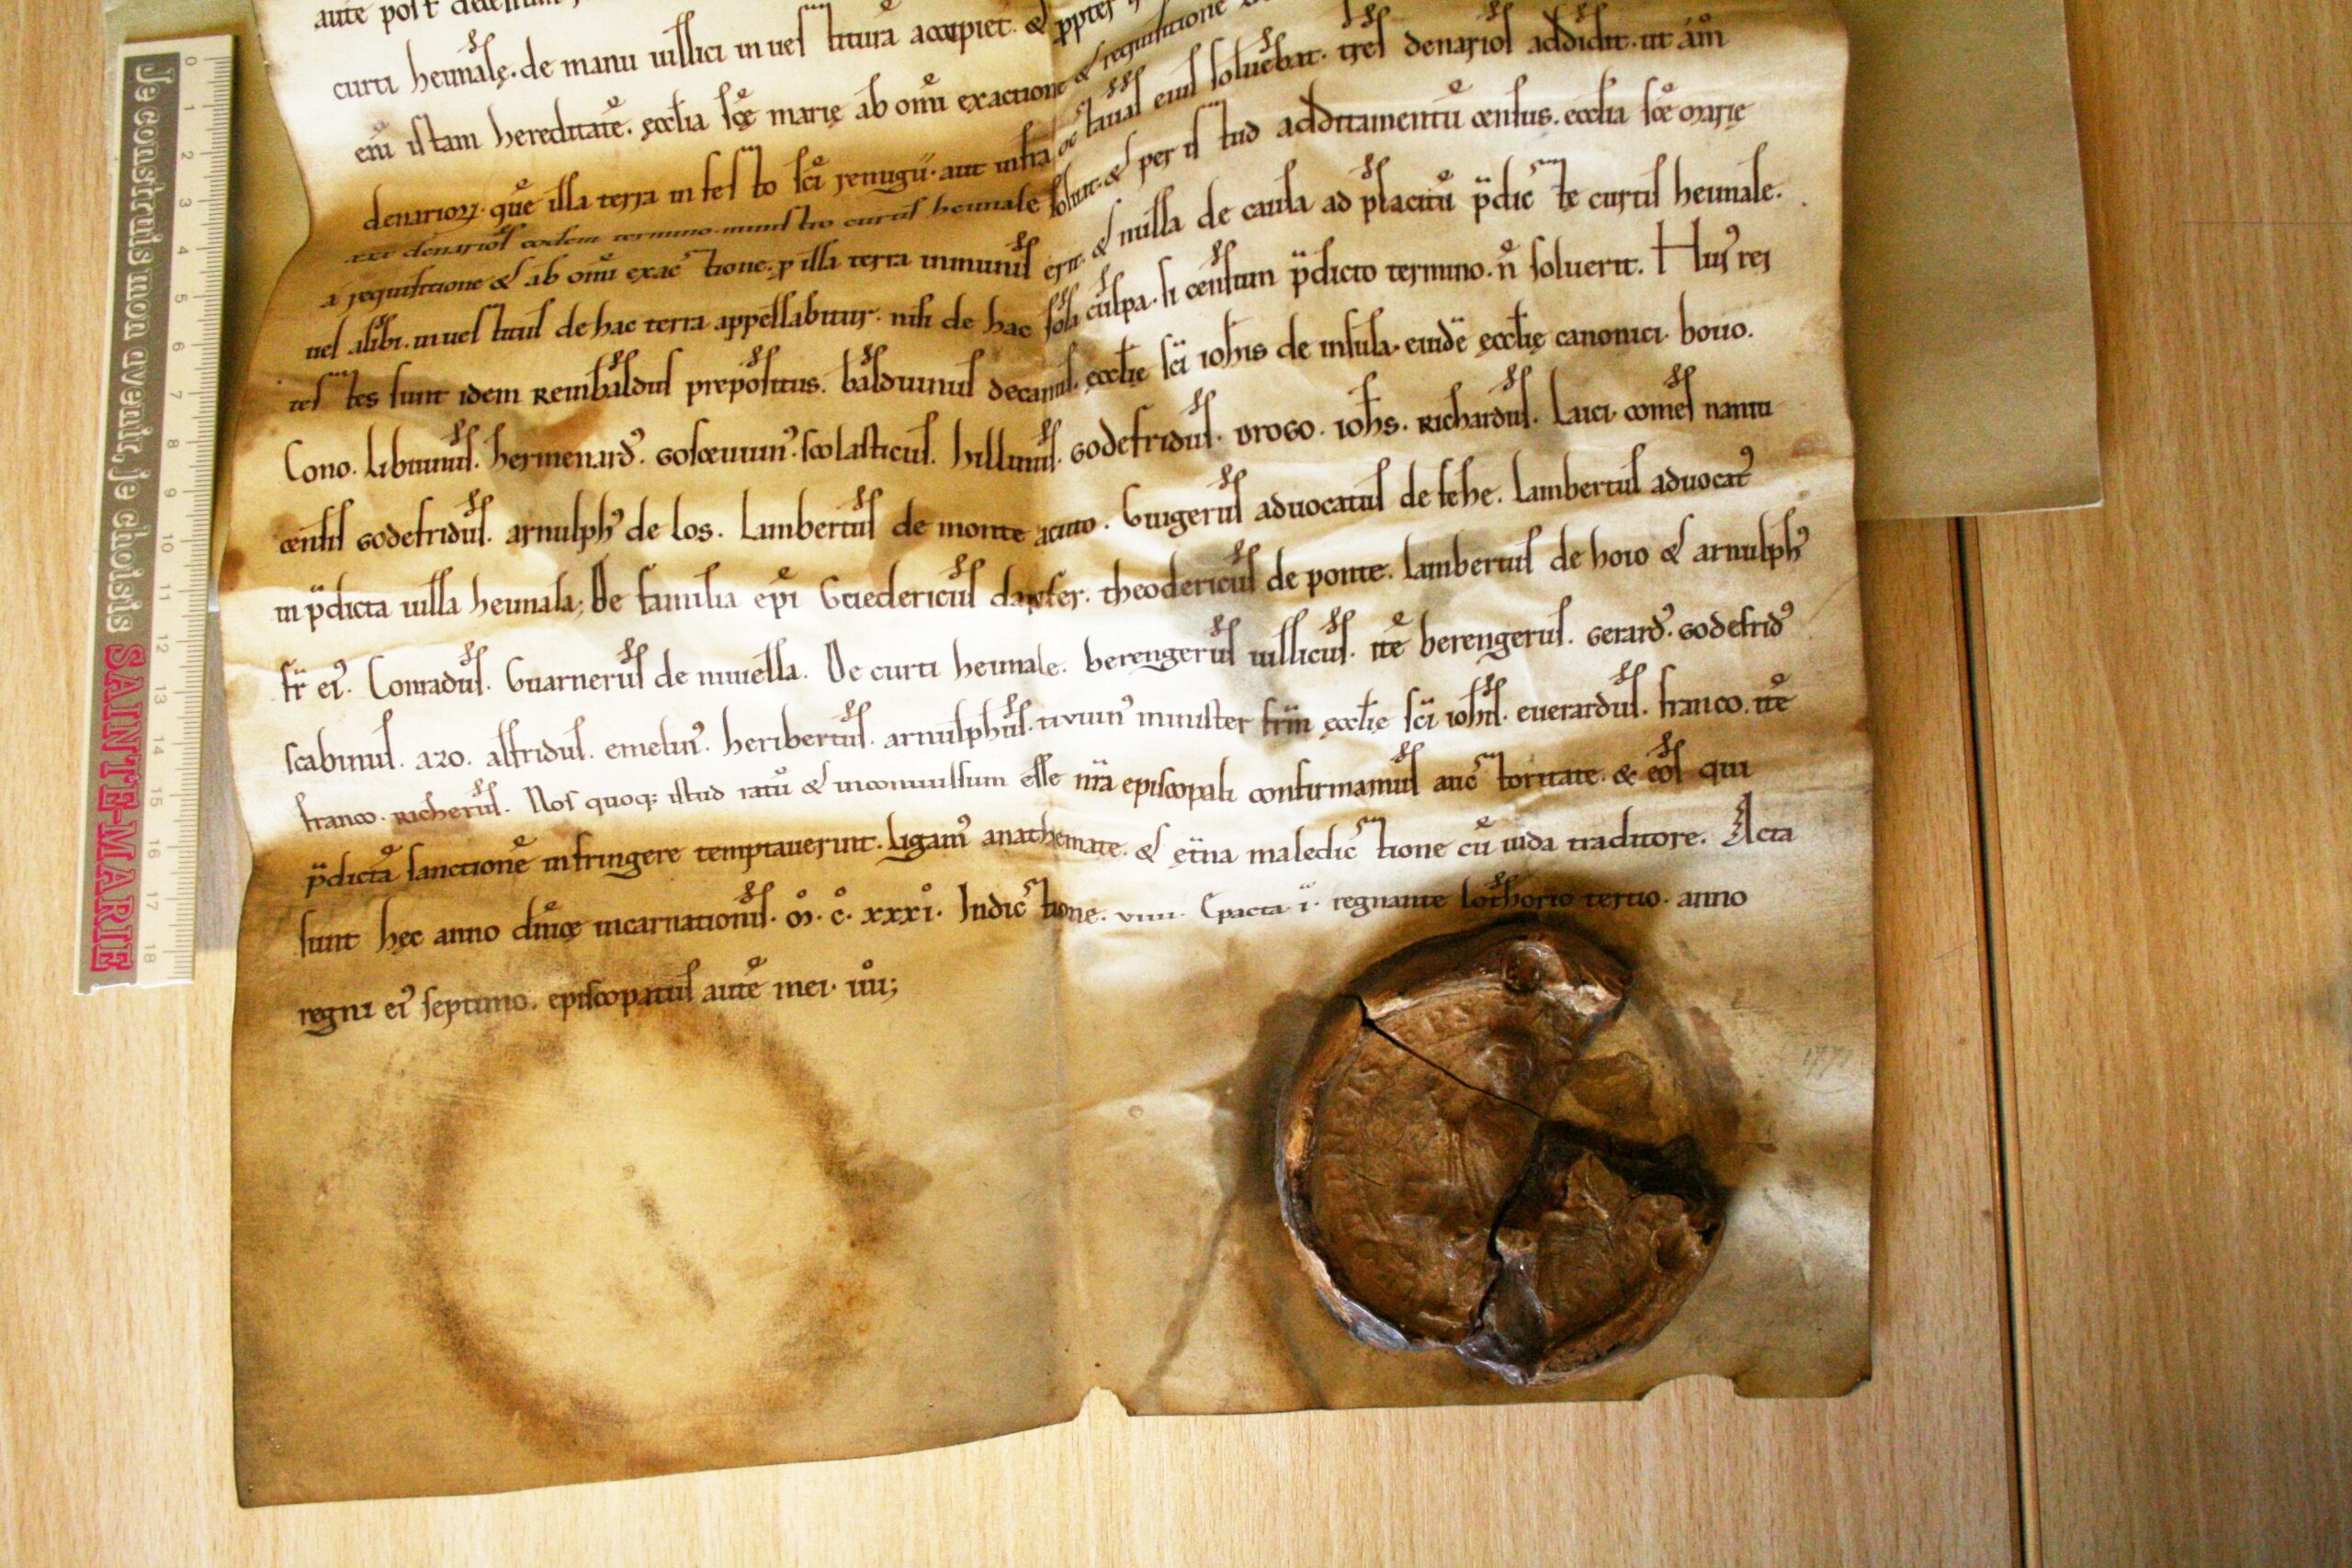 aute post
curti heimalę. de manu uillici inuestitura accipiet. & ppter
eni istam hereditate. ęcclia sce marię ab omi exactione & requisitione
denariorum. que illa terra in festo sci remigii. aut infra octauas eius soluebat. tres denarios addidit. ut am
denarios eodem termino. ministro curtis heimale soluit. & per istud additamentu census. ecclia sce marie
a requisitione & ab omi exactione. p illa terra inmunis erit. & nulla de causa ad placitu pdicte curtis heimale.
uel alibi. inuestitus de hac terra appellabitur. nisi de hac sola culpa. si censum pdicto termino. n soluerit. Hui' rei
testes sunt idem Reimbaldus prepositus. balduinus decanus. ęcclię sci iohis de insula. euide ęcclię canonici. bouo.
Cono. Libuinus. hermenard'. goscuuin'. scolasticus. hillinus. godefridus. Drogo. iohs. Richardus. Laici. comes namu
censis godefridus. arnulph' de los. Lambertus de monte acuto. Guigerus aduocatus de fehe. Lambertus aduocat'
in pdicta uilla heimala; De familia epi Guedericus dapifer. theodericus de ponte. lambertus de hoio & arnulph'
fr ei'. Conradus. Guarnerus de niuella. De curti heimale. berengerus uillicus. ite berengerus. gerard'. godefrid'
scabinus. azo. alfridus. emelin'. heribertus. arnulphus. minister frm ęcclię sci iohis. euerardus. franco. ite
franco. Richerus. Nos quoq; istud ratu & inconuulsum esse nra episcopali confirmamus auctoritate. & eos qui
pdicta sanctione infringere temptauerint. ligam' anathemate. & etna maledictione cu iuda traditore. Acta
sunt hęc anno diuicę incarnationis. m. c. xxxi. Indictione. viiii. Epacta i. regnante lothorio tertio. anno
regni ei' septimo. episcopatus aute mei. iii;
0 1 2 3 4 5 6 7 8 9 10 11 12 13 14 15 16 17 18
Je construis mon avenir, je choisis SAINTE-MARIE